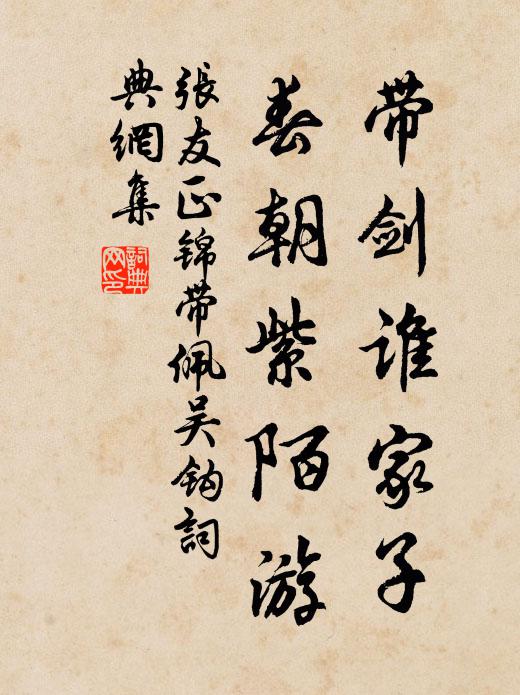 带剑谁家子
春朝紫陌游
張友正錦帶佩吴鈎詞
典網集
詞典
网印